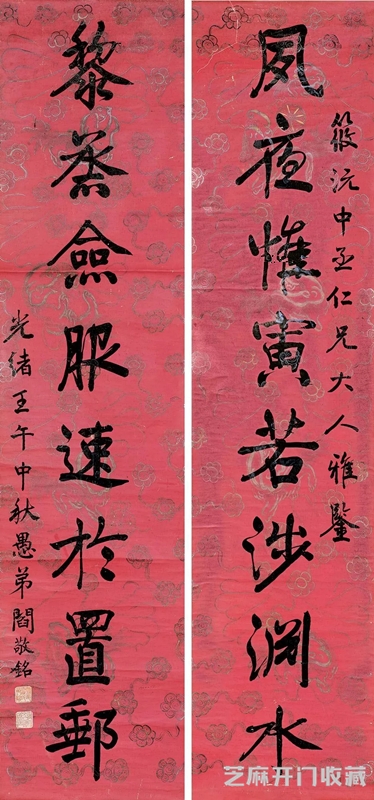 筱沅中丞仁兄大人雅鑒
夙夜惟寅若涉渊水
黎蒸僉服速於置郵
光緒壬午中秋愚弟閻敬銘
芝麻开门收藏